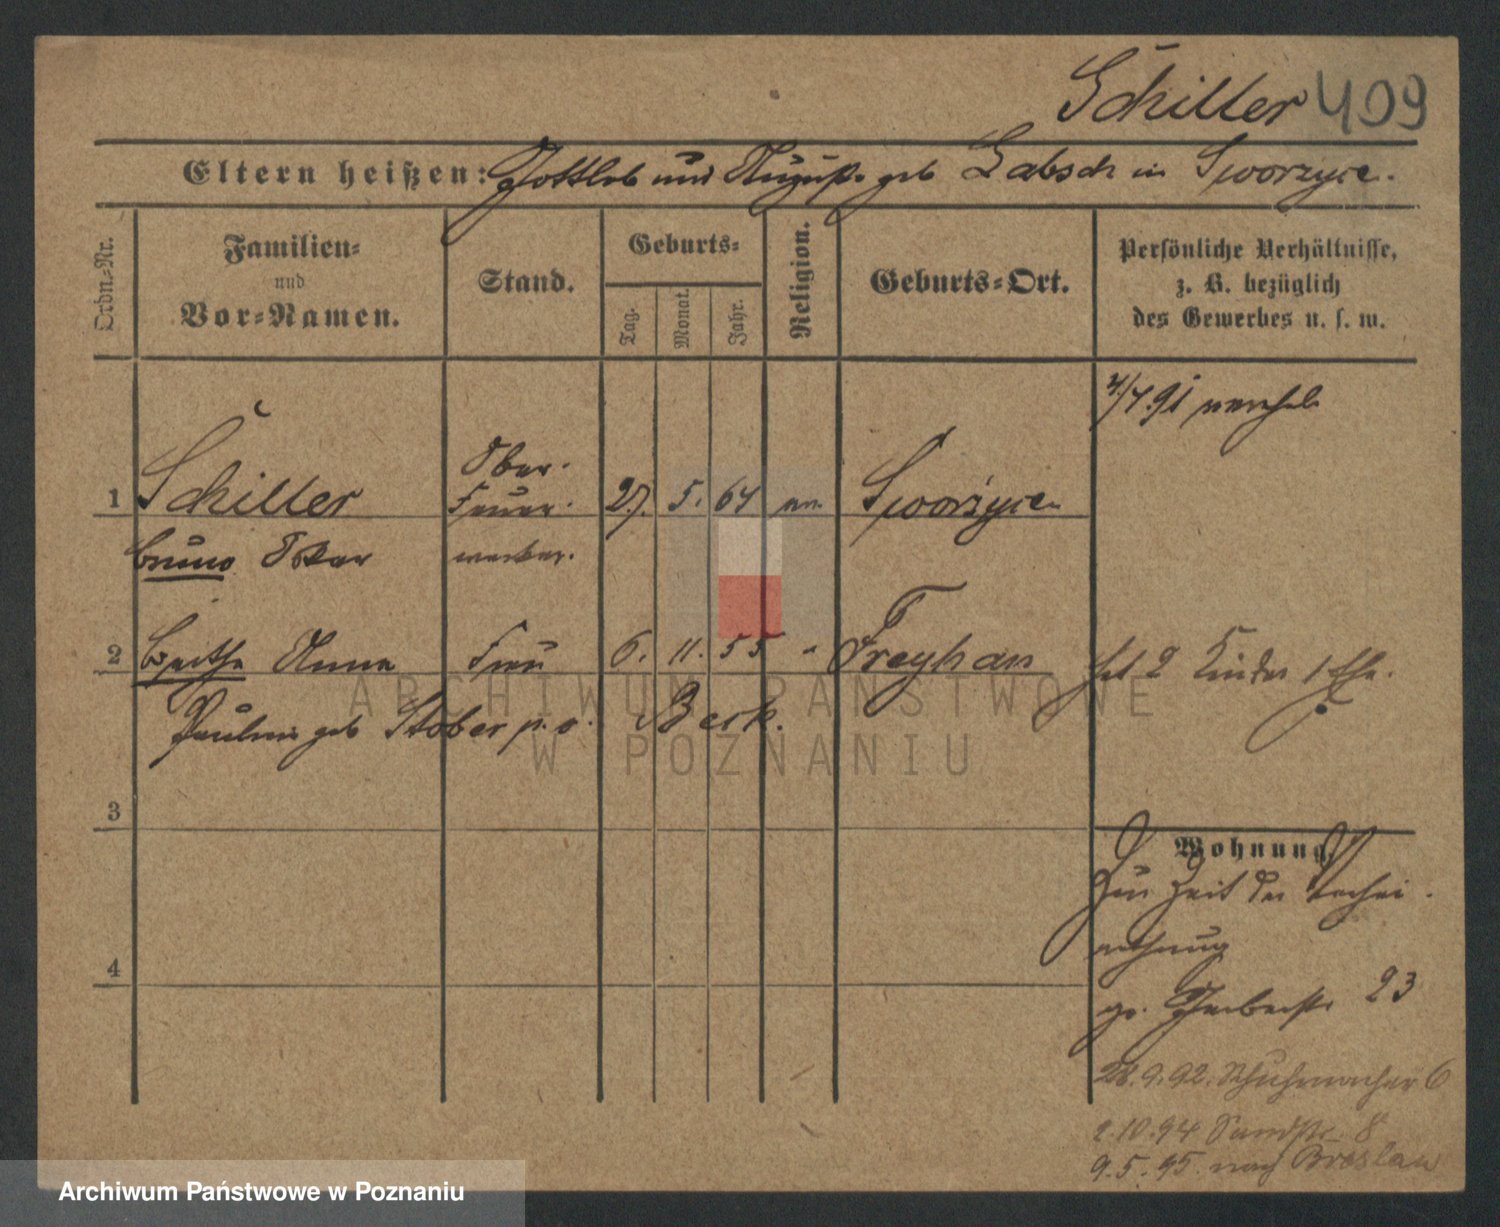 Schiller 409
Eltern heißen: Gottlob und Auguste geb Labsch in
Ordn.-Nr.
Familien-
und
Vor-Namen.
Stand.
Geburts-
Tag.
Monat.
Jahr.
Religion.
Geburts-Ort.
Persönliche Verhältnisse,
z. B. bezüglich
des Gewerbes u. s. w.
1 Schiller
Bruno Oskar
Ober-
Feuer-
werker.
27. 5. 64 ev.
4/4 91 vereh.
2 Bertha Anna Frau 6. 11. 55 " Freyhan
Pauline geb Stober p. o. Berk.
hat 2 Kinder 1 Ehe.
3
4
Wohnung.
Zur Zeit der Verhei-
rathung
gr. Gerberstr 23
28.9.92. Schuhmacher 6
2.10.94 Sandstr. 8
9.5.95. nach Breslau
ARCHIWUM PAŃSTWOWE
W POZNANIU
Archiwum Państwowe w Poznaniu